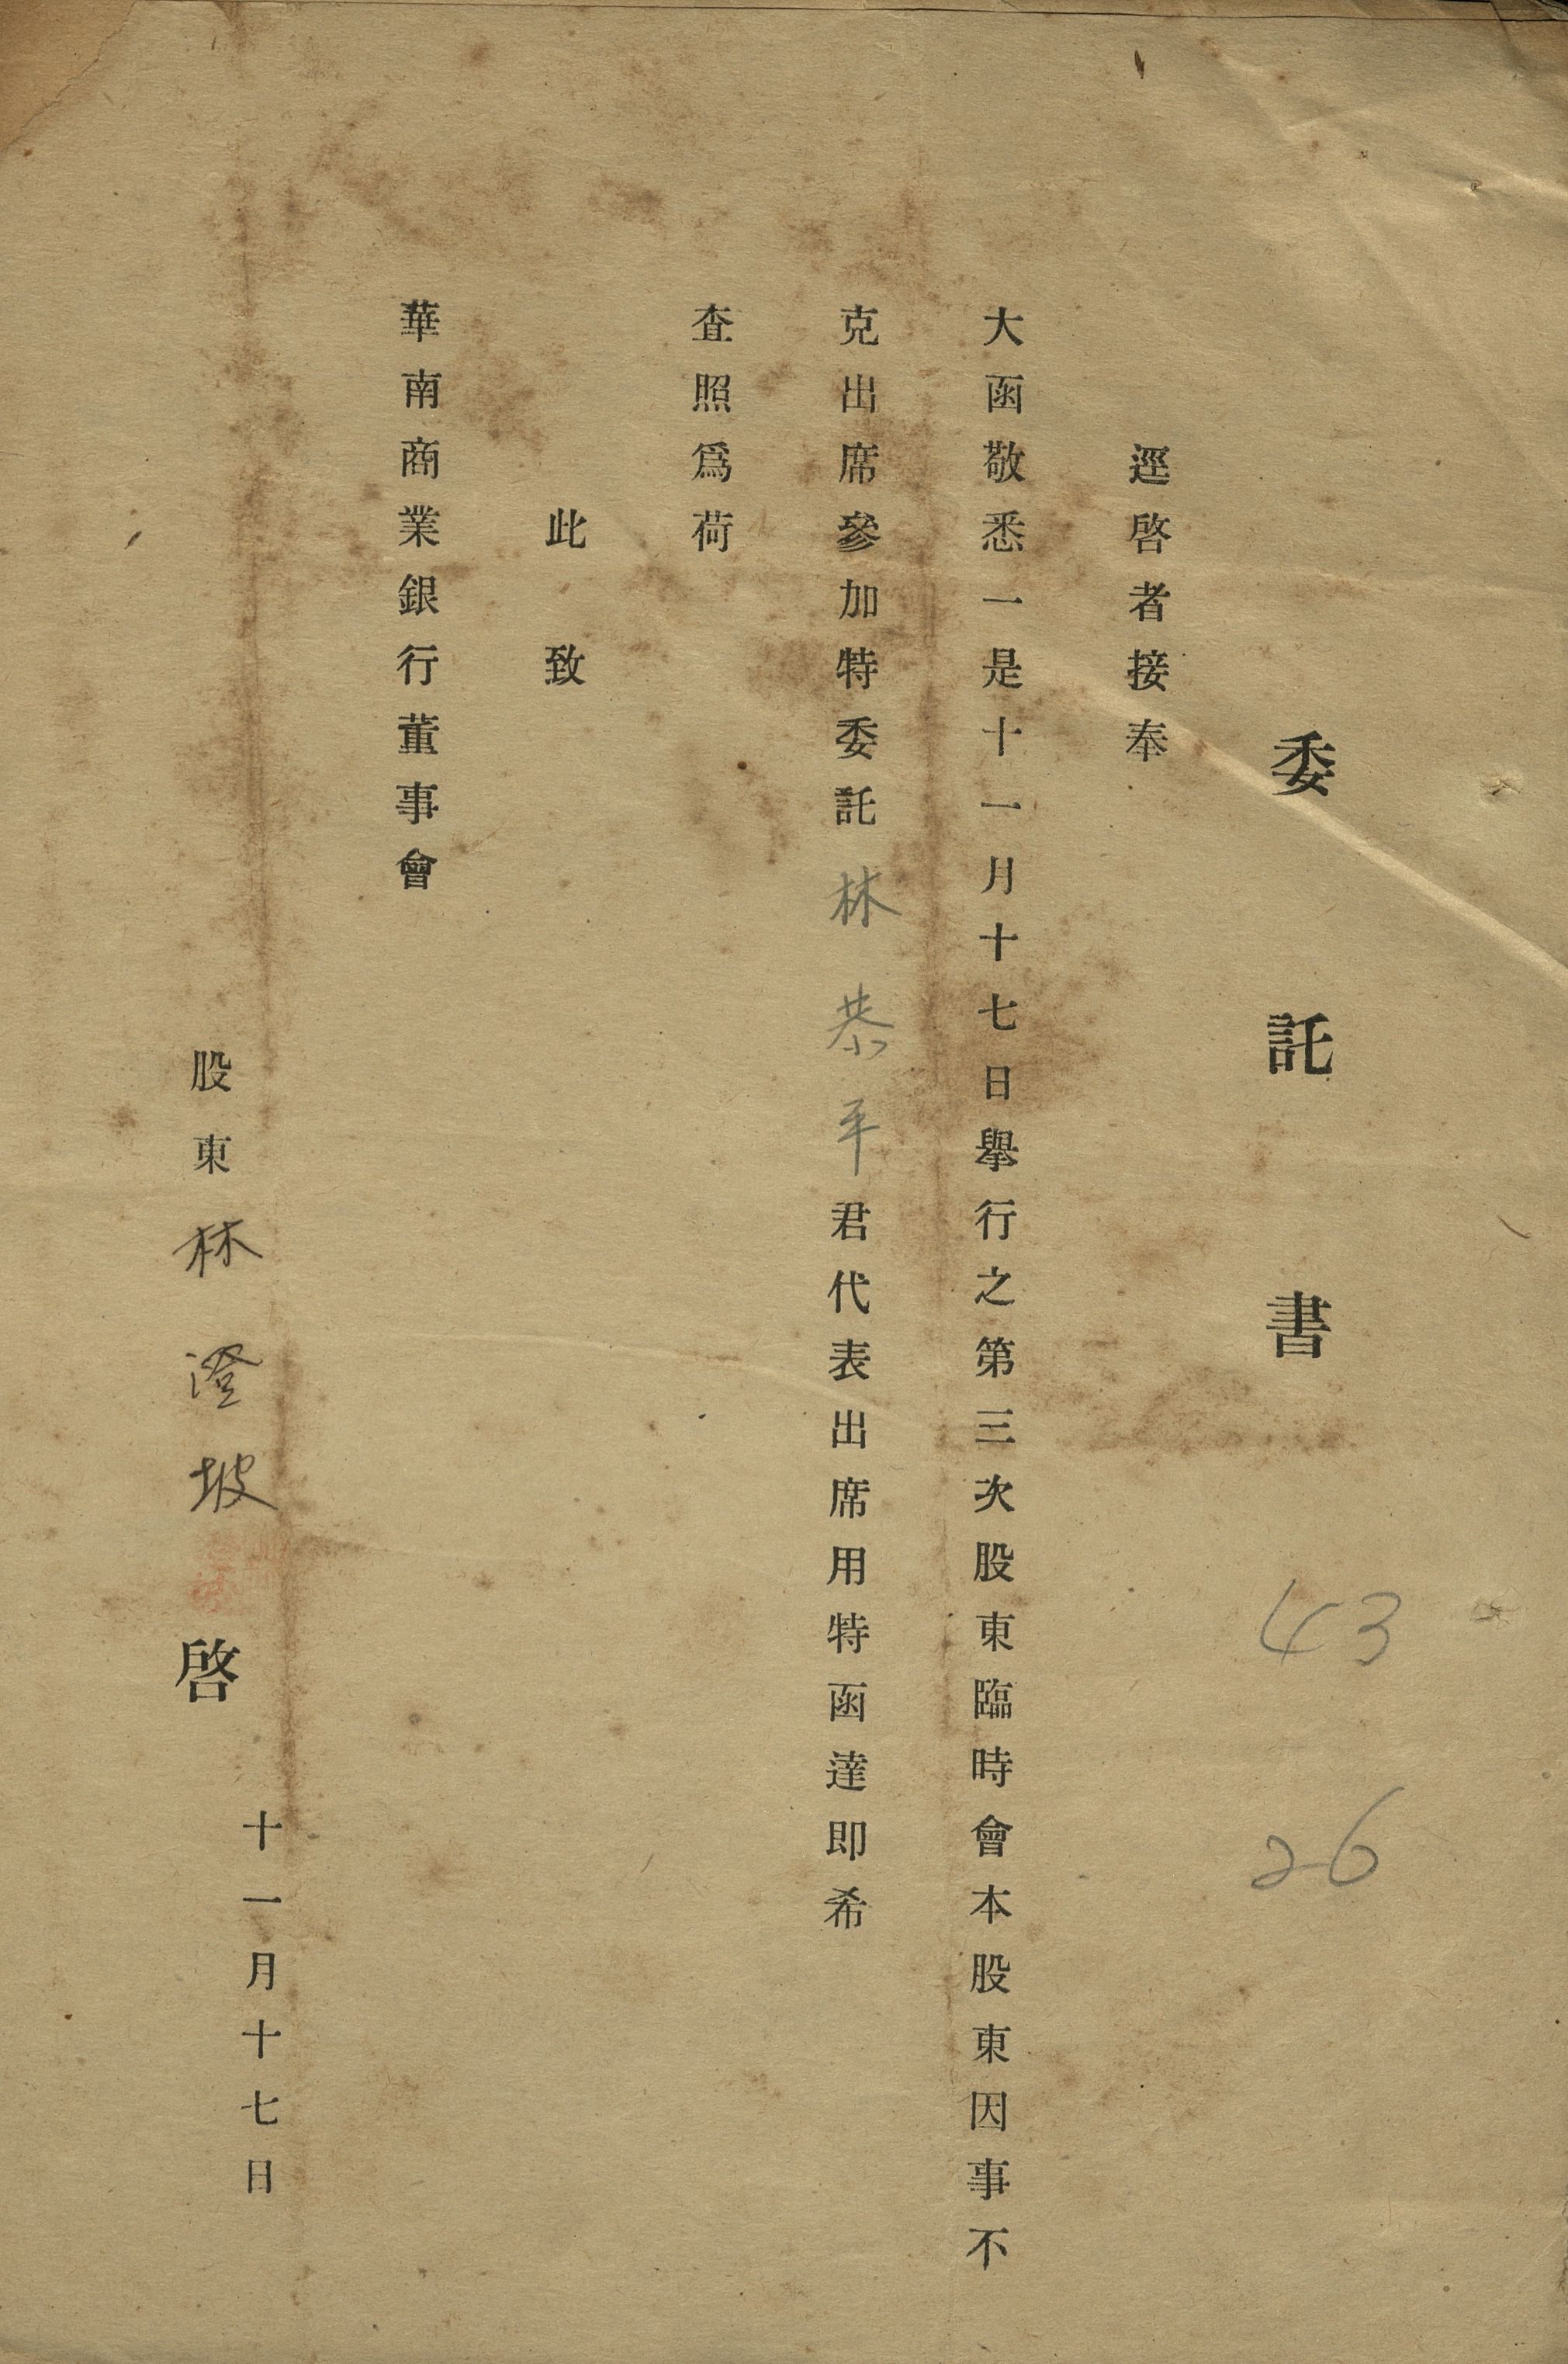 委託書
43
26
逕啓者接奉
大函敬悉一是十一月十七日舉行之第三次股東臨時會本股東因事不
克出席參加特委託林恭平君代表出席用特函達即希
查照爲荷
此致
華南商業銀行董事會
股東林澄坡啓
十一月十七日